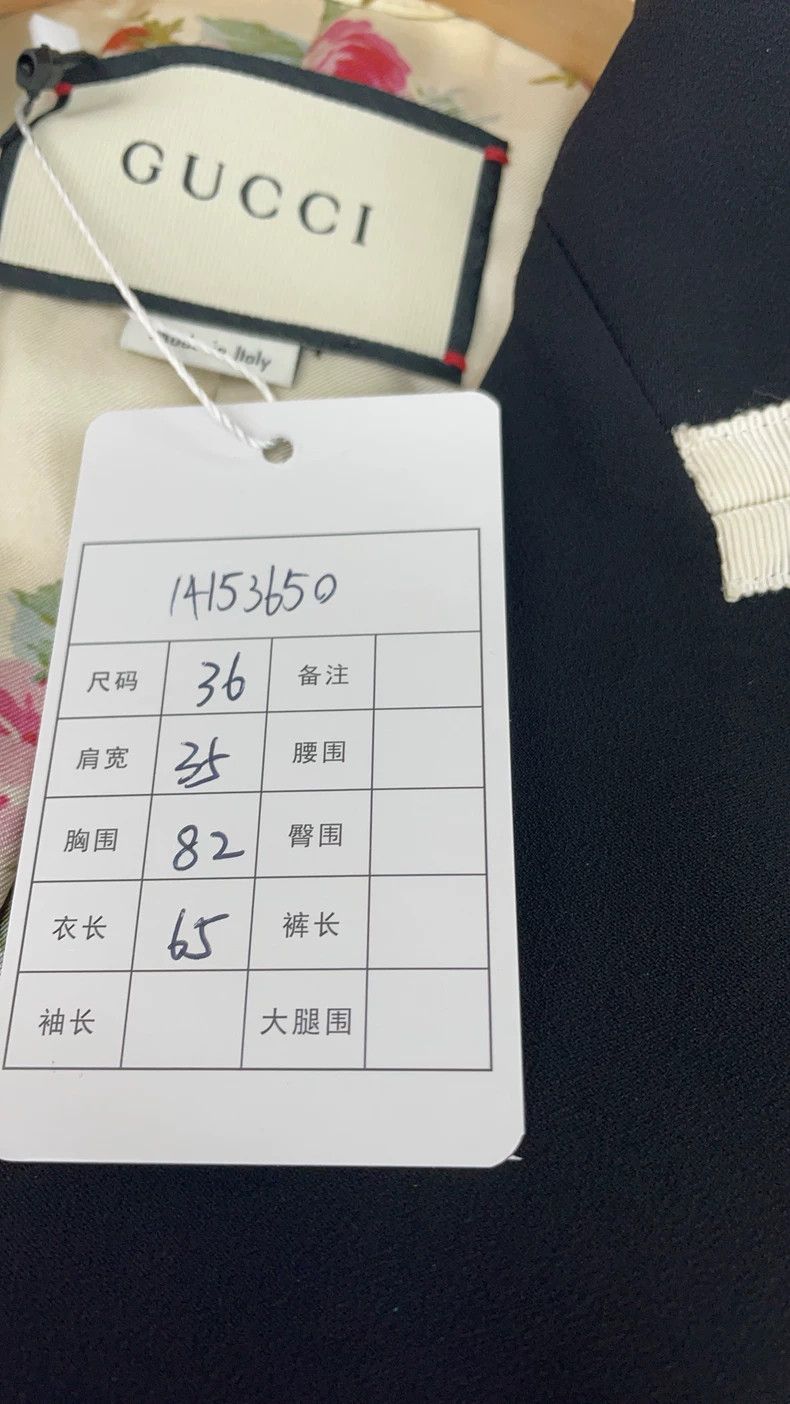 GUCCI
made in Italy
14153650
尺码 36 备注
肩宽 35 腰围
胸围 82 臀围
衣长 65 裤长
袖长 大腿围